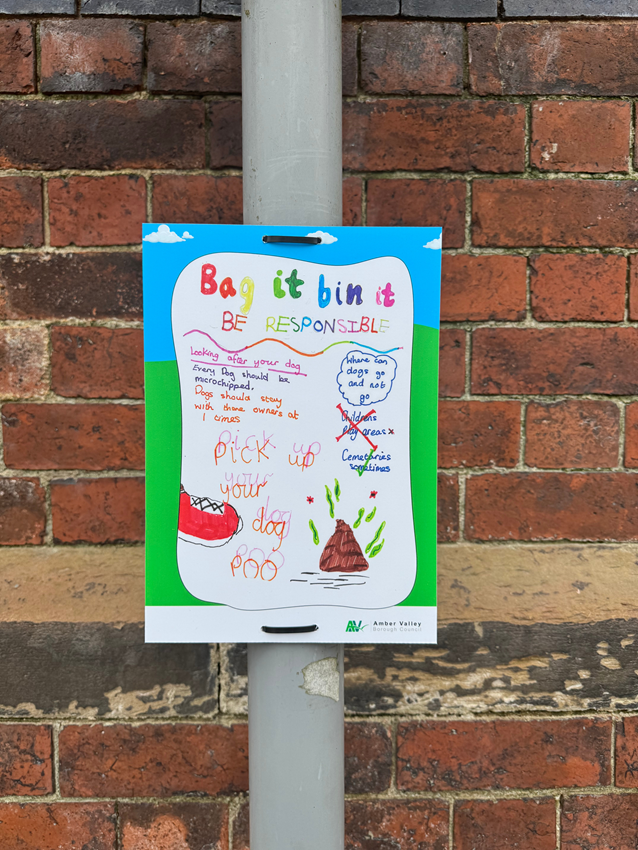 Bag it bin it
BE RESPONSIBLE
Looking after your dog
Every Dog should be
microchipped.
Dogs should stay
with there owners at
1 times
Where can
dogs go
and not
go
Childrens
Play areas x
Cemetaries
sometimes
pick up
your
dog
poo
Amber Valley
Borough Council